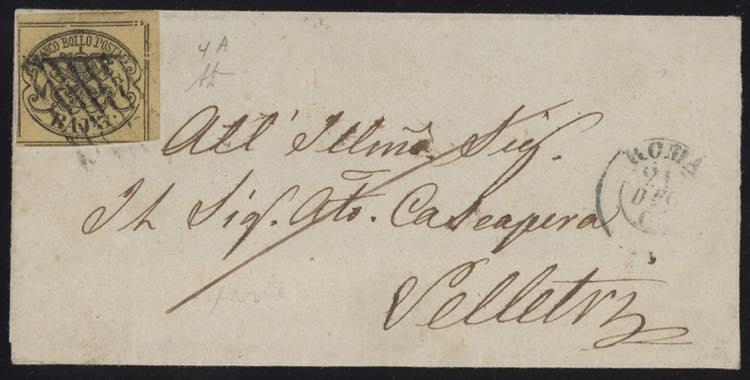 FRANCO BOLLO POSTALE
BAJ 3.
4 A
All' Illmo. Sig.
Il Sig. Ato. Cascapera
Velletri
ROMA
21
DEC